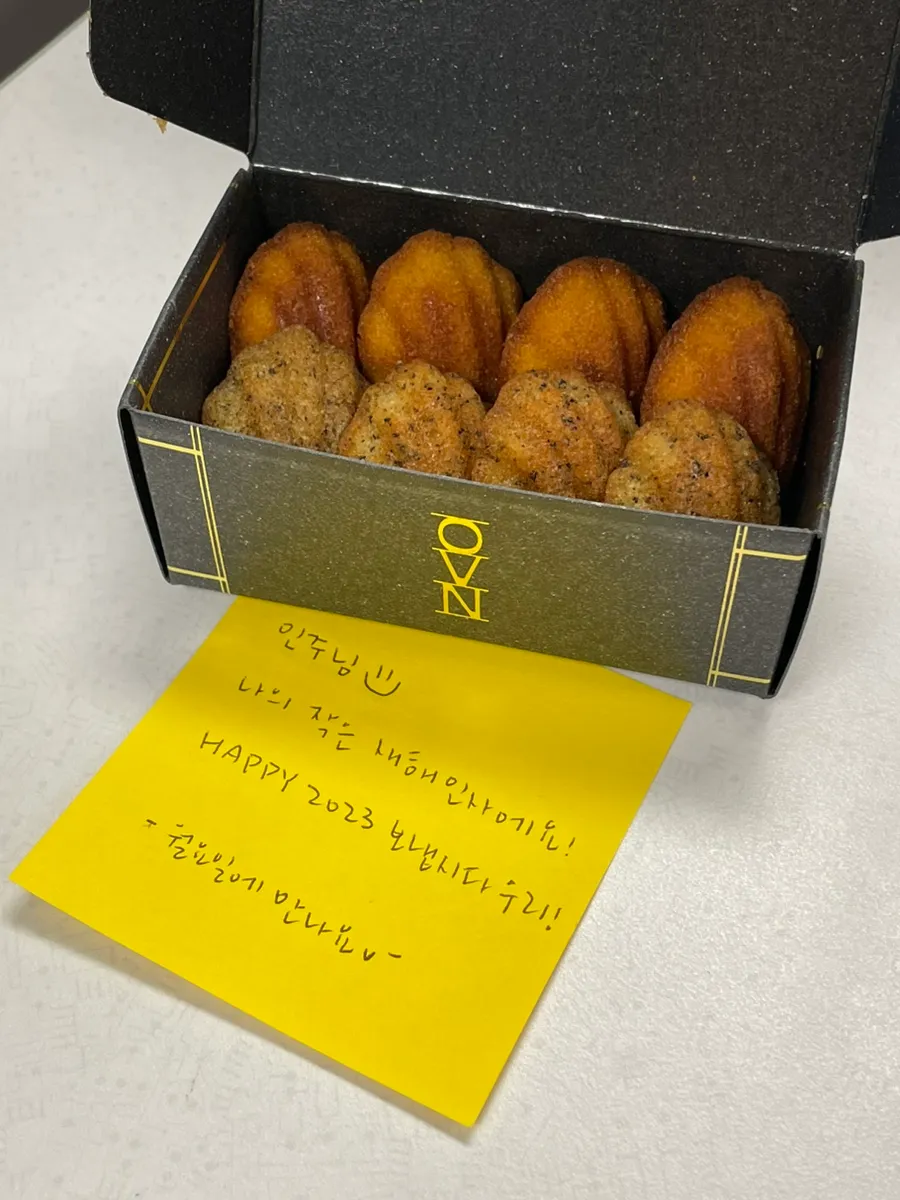 OVN
인주님
나의 작은 새해인사에요!
HAPPY 2023 보냅시다 우리!
- 월요일에 만나요 -